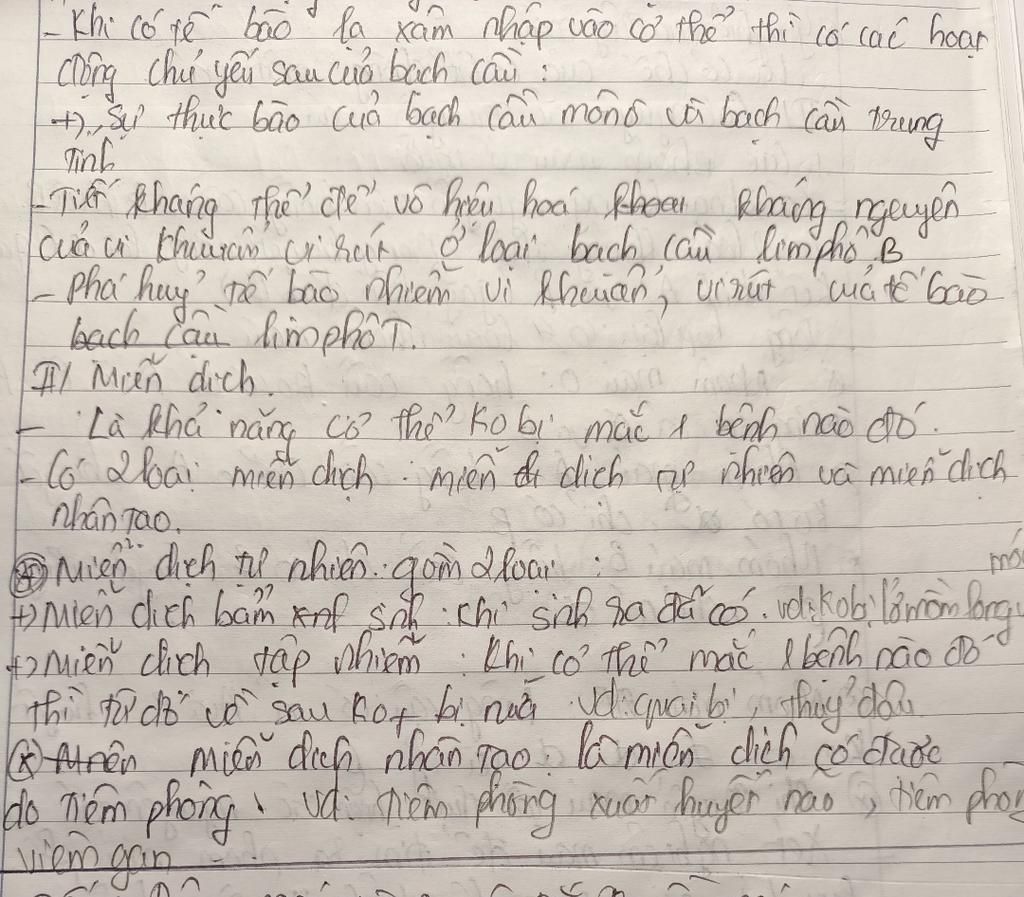 - Khi có tế bào lạ xâm nhập vào cơ thể thì có các hoạt
động chủ yếu sau của bạch cầu :
+) Sự thực bào của bạch cầu mônô và bạch cầu trung
tính
- Tiết kháng thể để vô hiệu hoá kháng nguyên
của vi khuẩn vi rút ở loại bạch cầu limphô B
- phá huỷ tế bào nhiễm vi khuẩn, virút của tế bào
bạch cầu limphô T.
II/ Miễn dịch.
- Là khả năng cơ thể ko bị mắc 1 bệnh nào đó.
- Có 2 loại miễn dịch : miễn dịch tự nhiên và miễn dịch
nhân tạo.
* Miễn dịch tự nhiên : gồm 2 loại :
+) Miễn dịch bẩm sinh : khi sinh ra đã có. vd: Ko bị lở mồm long
mó
+) Miễn dịch tập nhiễm : khi cơ thể mắc 1 bệnh nào đó
thì từ đó về sau ko bị nữa vd: quai bị, thủy đậu
* miễn dịch nhân tạo : là miễn dịch có được
do tiêm phòng. vd: tiêm phòng xuất huyết não, tiêm phòn
viêm gan